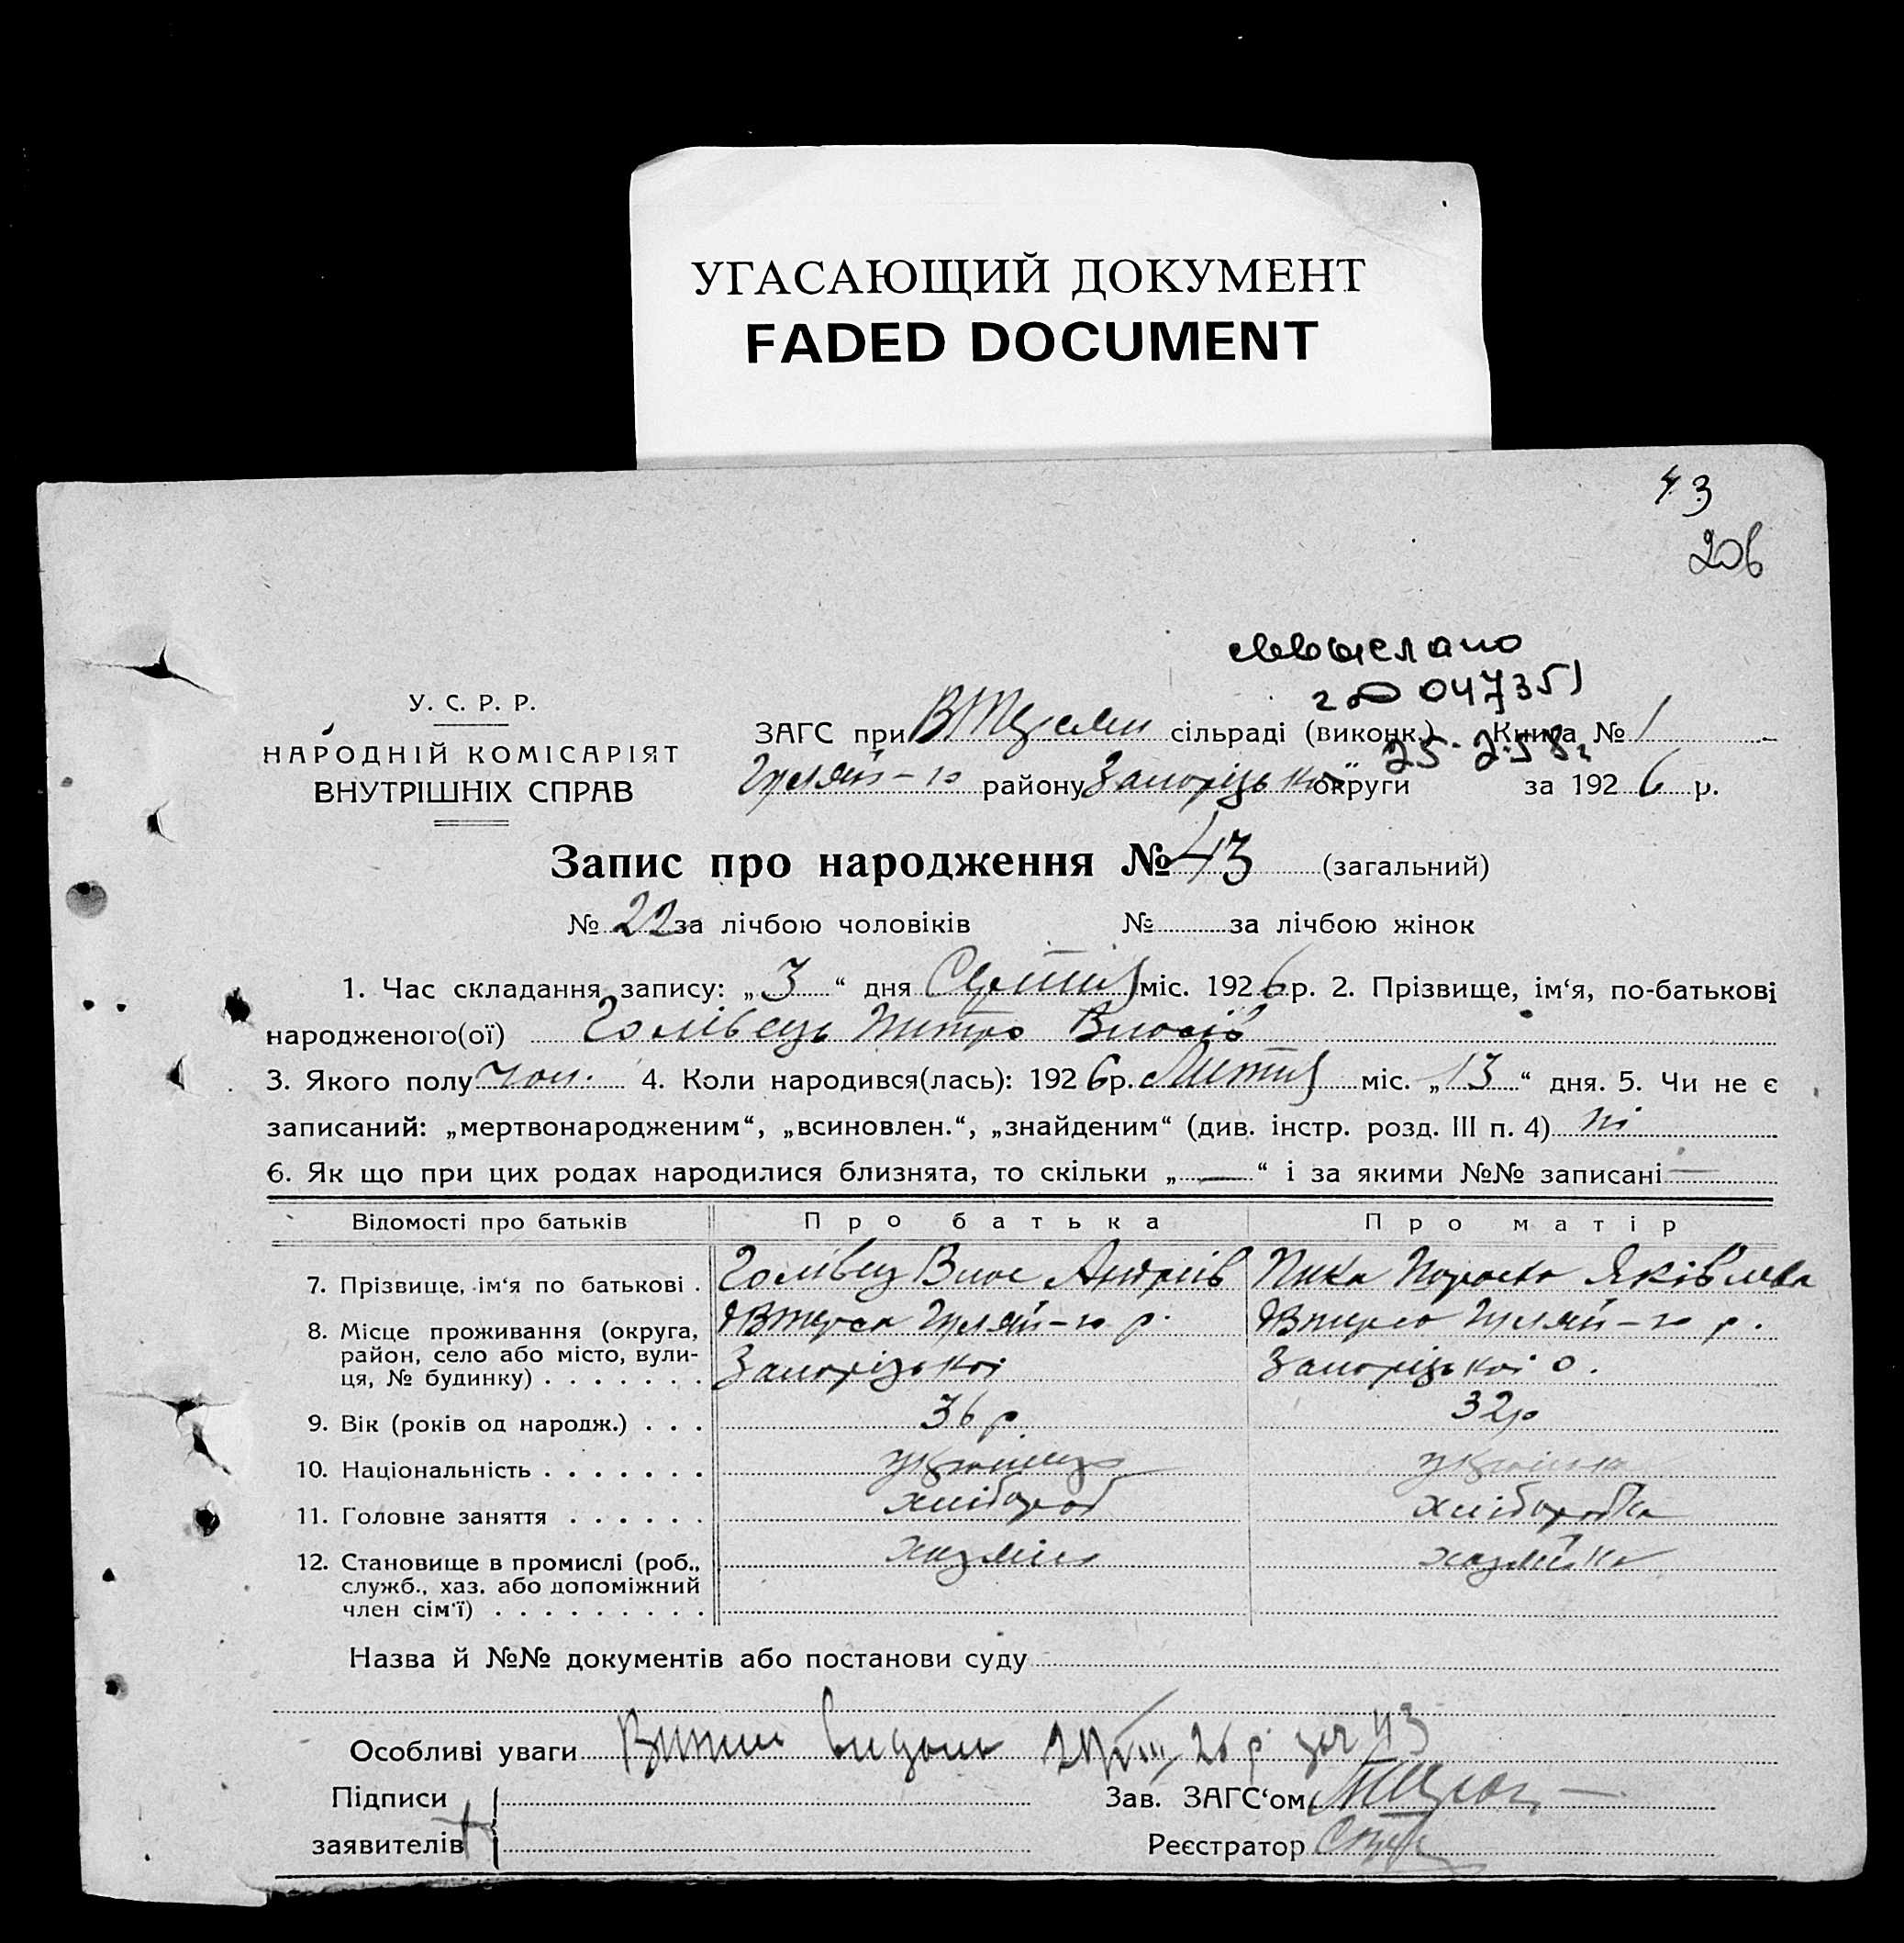 УГАСАЮЩИЙ ДОКУМЕНТ
FADED DOCUMENT
43
206
047351
25.2.58г
У. С. Р. Р.
НАРОДНІЙ КОМІСАРІЯТ
ВНУТРІШНІХ СПРАВ
ЗАГС при сільраді (виконк.) Книга № 1
Гуляй-го району Запорізької округи за 1926 р.
Запис про народження № 43 (загальний)
№ 22 за лічбою чоловіків № за лічбою жінок
1. Час складання запису: „3“ дня міс. 1926 р. 2. Прізвище, ім‘я, по-батькові
народженого(ої) Голівець Митро Власів
3. Якого полу чол. 4. Коли народився(лась): 1926 р. міс. „13“ дня. 5. Чи не є
записаний: „мертвонародженим“, „всиновлен.“, „знайденим“ (див. інстр. розд. III п. 4) ні
6. Як що при цих родах народилися близнята, то скільки „—“ і за якими №№ записані —
Відомості про батьків Про батька Про матір
7. Прізвище, ім‘я по батькові . Голівец Влас Андріїв Яківлева
8. Місце проживання (округа, Гуляй-го р. Гуляй-го р.
район, село або місто, вули-
ця, № будинку) . . . . . . . Запорізької Запорізької о.
9. Вік (років од народж.) . . . 36 р 32 р
10. Національність . . . . . . . українець українка
11. Головне заняття . . . . . . хлібороб хліборобка
12. Становище в промислі (роб., хазяїн хазяйка
служб., хаз. або допоміжний
член сім‘ї) . . . . . . . . .
Назва й №№ документів або постанови суду
Особливі уваги 26 р. 43
Підписи Зав. ЗАГС‘ом
заявителів Реєстратор